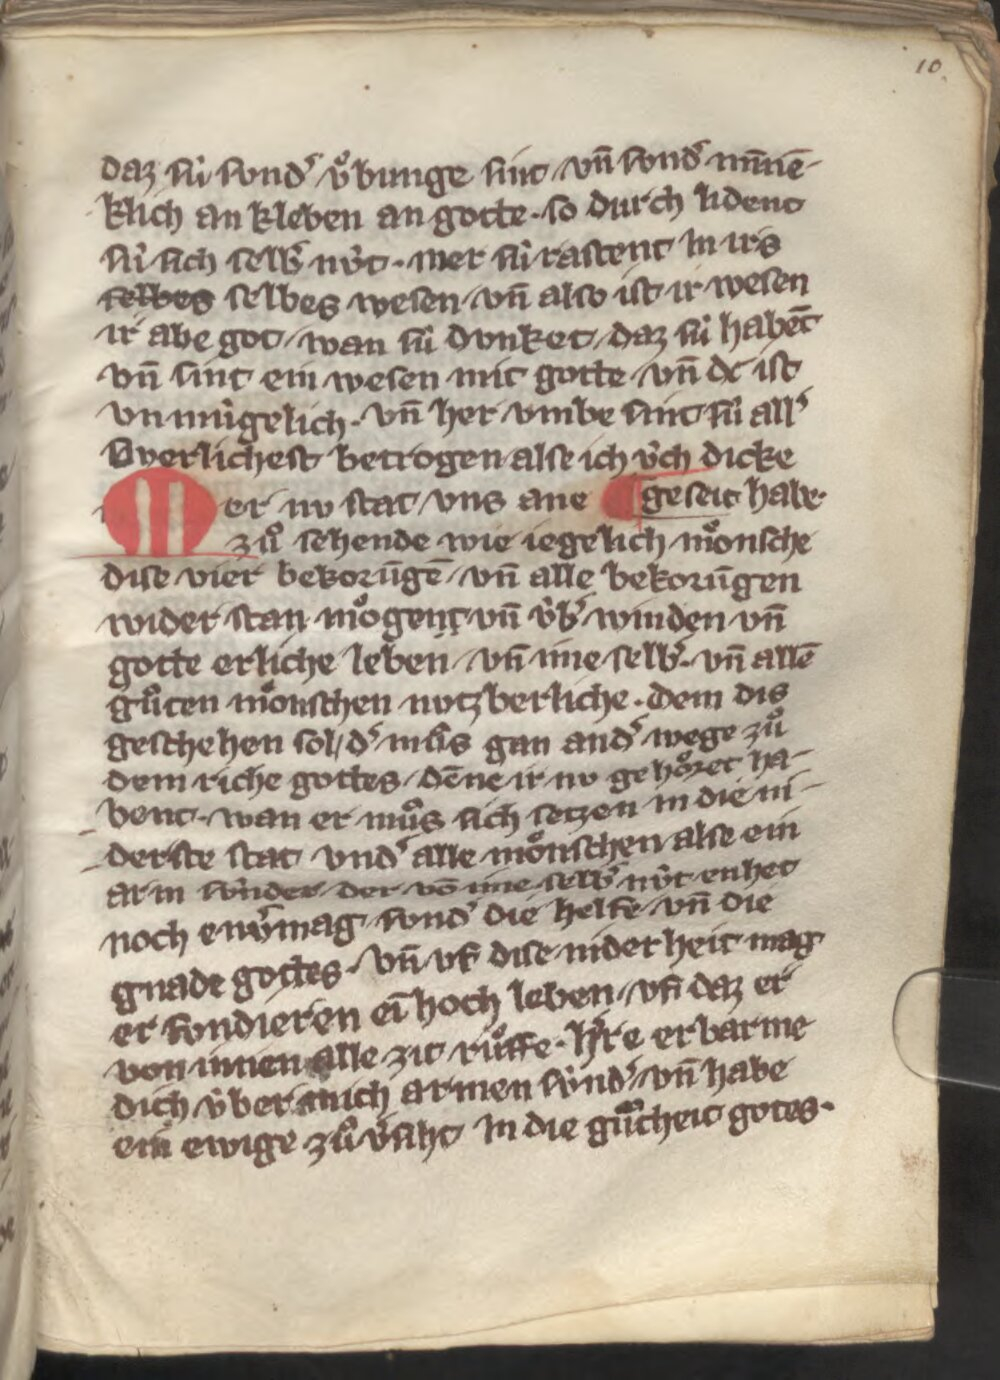 10
daz sú sond᾽ v̊bunge sint vn̄ sond᾽ minē-
klich an kleben an gotte · so durch lident
sú sich selb᾽ nv́t · mer sú rastent in irs
selbes selbes wesen vn̄ also ist ir wesen
ir abe got / wan sú dvnket / daz sú habēt
vn̄ sint ein wesen mit gotte vn̄ dc ist
vn múgelich · vn̄ her vmbe sint sú all᾽
betrogen alse ich v́ch dicke
er nv stat vns ane ¶ geseit habe ·
zů sehende wie iegelich mo̊nsche
dise vier bekorūgē vn̄ alle bekorūgen
wider stan mo̊gent vn̄ v́b᾽ winden vn̄
gotte erliche leben vn̄ ime selb᾽ · vn̄ allē
gůten mo̊nschen nvtzberliche · dem dis
geschehen sol / d᾽ můs gan and᾽ wege zů
dem riche gottes · dēne ir nv geho̊ret ha-
bent · wan er můs sich setzen in die ni-
derste stat vnd᾽ alle mo̊nschen alse ein
arm sv́nder der vō ime selb᾽ nv́t enhet
noch env᾽mag sond᾽ die helfe vn̄ die
gnade gottes · vn̄ vf dise niderheit mag
er fvndieren eī hoch leben / vn̄ daz er
von innen alle zit růffe · h᾽re erbarme
dich v́ber mich armen sv́nd᾽ vn̄ habe
ein ewige zů v᾽siht in die gůtheit gotes ·